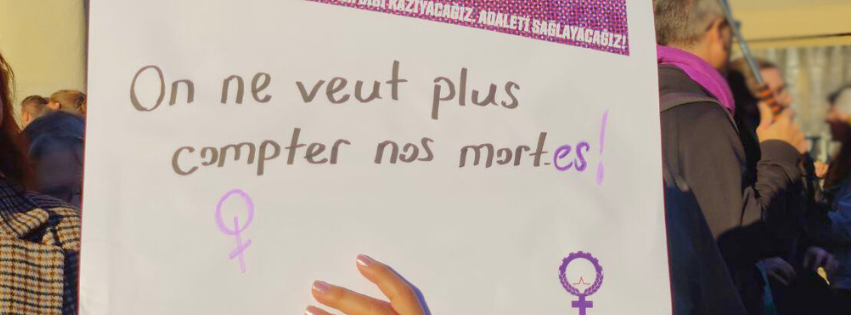 KAZIYACAĞIZ. ADALETİ SAĞLAYACAĞIZ!
On ne veut plus
compter nos mort.es!